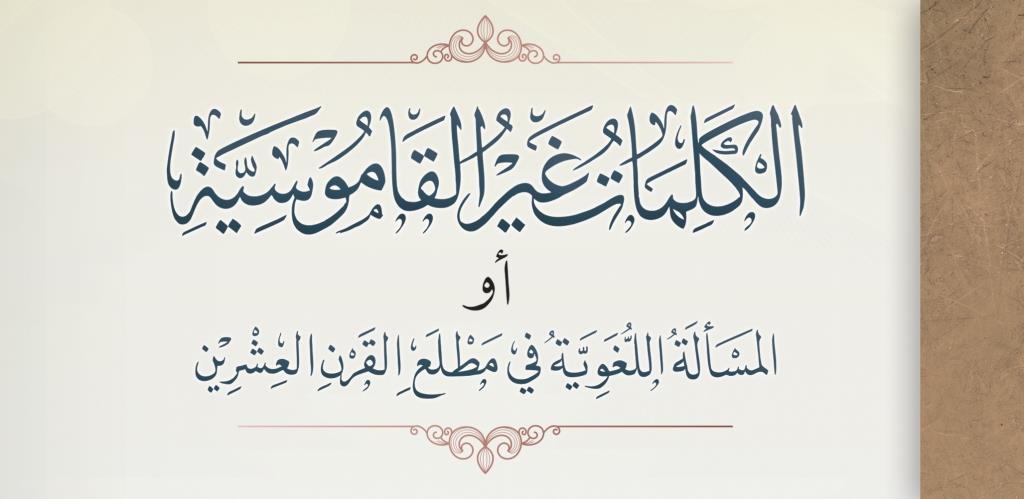 الكَلِمَاتُ غَيْرُ القَامُوْسِيَّةِ
أو
المَسْألَةُ اللُّغَوِيَّةُ فِي مَطْلَعِ القَرْنِ العِشْرِيْن